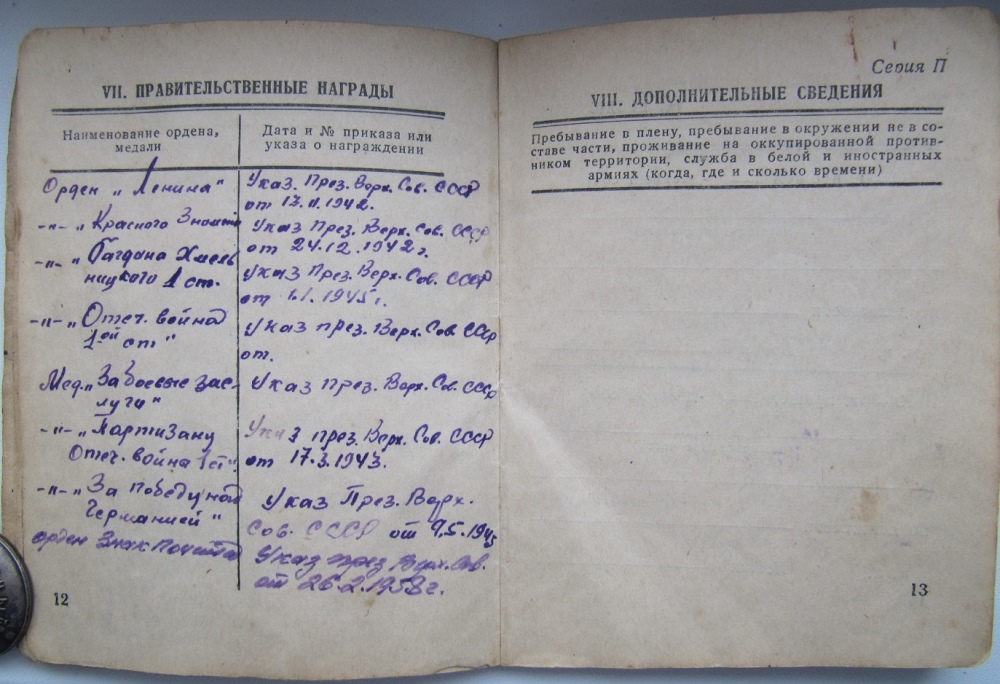 VII. ПРАВИТЕЛЬСТВЕННЫЕ НАГРАДЫ
Наименование ордена,
медали
Дата и № приказа или
указа о награждении
Орден „Ленина"
Указ. През. Верх. Сов. СССР
от 17.11.1942.
-"- „Красного Знамени
Указ През. Верх. Сов. СССР
от 24.12.1942г.
-"- „Багдана Хмель
ницкого 1 ст.
Указ През. Верх. Сов. СССР
от 1.1.1945г.
-"- „Отеч. война
1-ой ст"
Указ през. Верх. Сов СССР
от.
Мед. „За боевые зас-
луги"
Указ През. Верх. Сов. СССР
-"- „Партизану
Отеч. война 1 ст"
Указ през. Верх. Сов. СССР
от 17.3.1943.
-"- „За победу над
Германией"
Указ През. Верх.
Сов. СССР от 9.5.1945
орден Знак Почета
Указ през Верх. Сов.
от 26.2.1958г.
12
Серия П
VIII. ДОПОЛНИТЕЛЬНЫЕ СВЕДЕНИЯ
Пребывание в плену, пребывание в окружении не в со-
ставе части, проживание на оккупированной против-
ником территории, служба в белой и иностранных
армиях (когда, где и сколько времени)
13